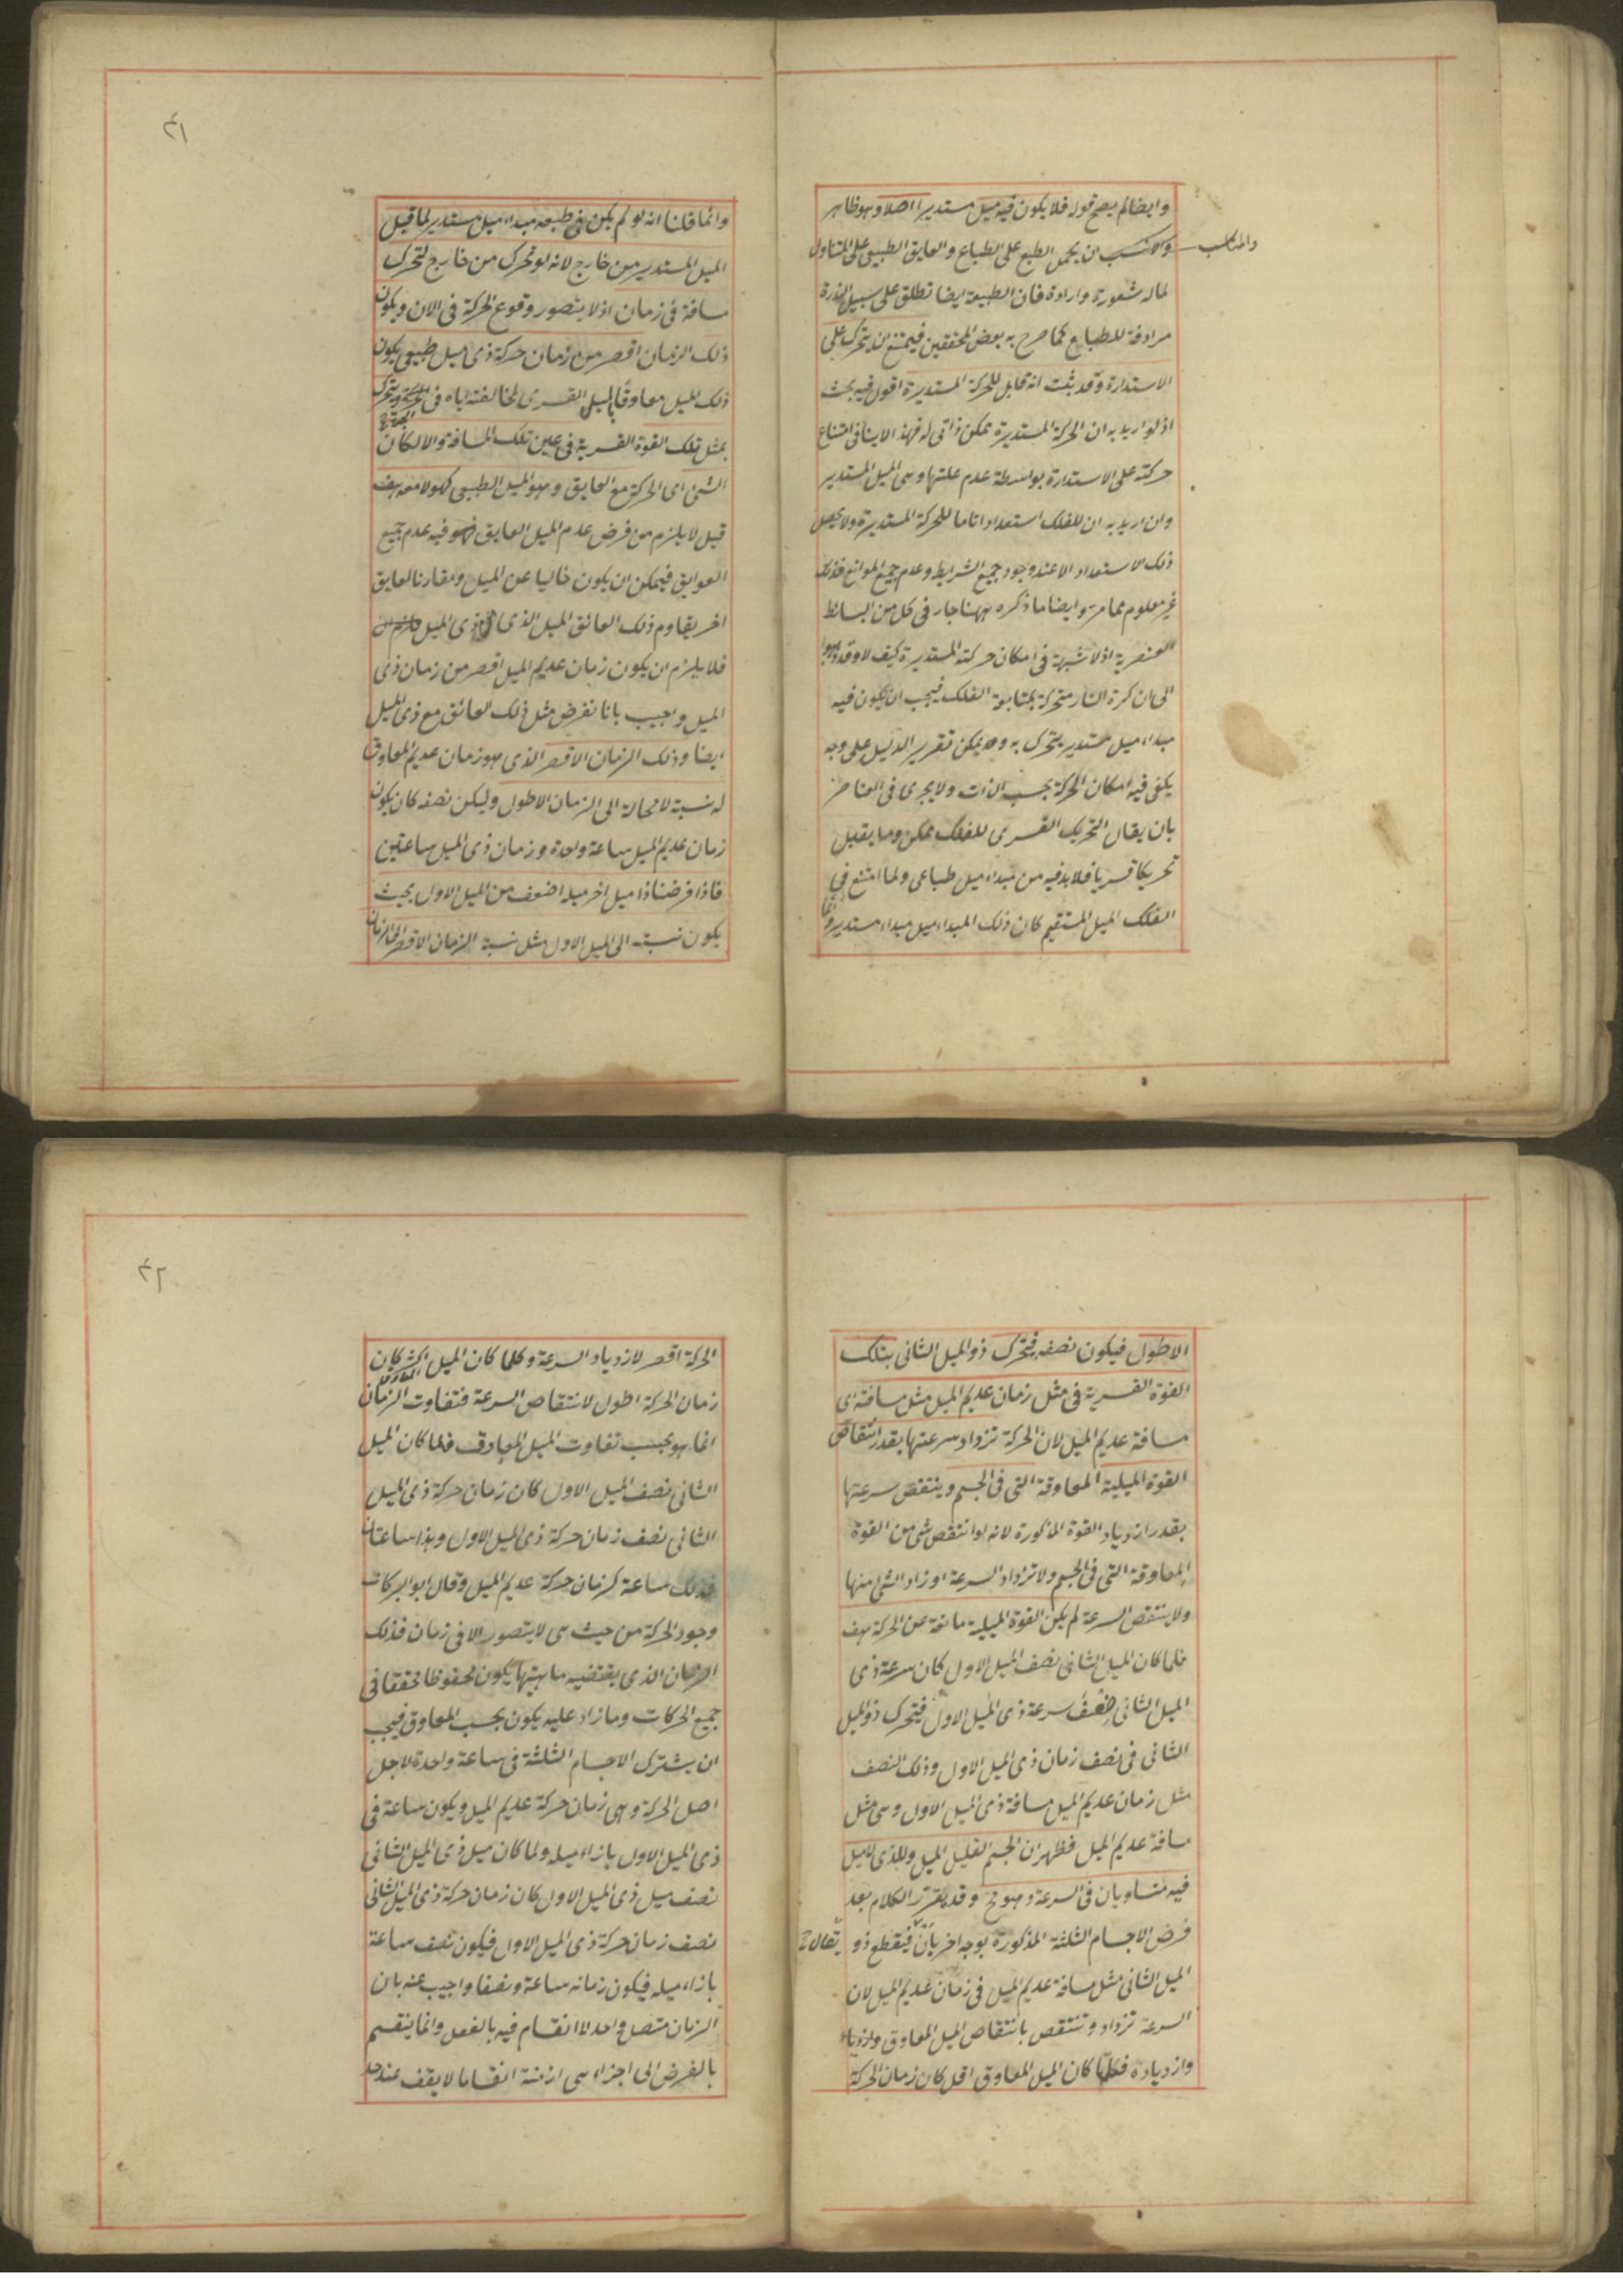 وايضا لم يصح قوله فلا يكون فيه ميل مستدير اصلا وهو ظاهر
والانسب ان يحمل الطبع على الطباع والعايق الطبيعى على المتناول
والمناسب
لماله شعور وارادة فان الطبيعة ايضا تطلق على سبيل الندرة
مرادفة للطباع كما صرح به بعض المحققين فيمتنع ان يتحرك على
الاستدارة وقد ثبت انه قابل للحركة المستديرة اقول فيه بحث
اذ لو اريد به ان الحركة المستديرة ممكن ذاتى له فهذا لا ينافى امتناع
حركته على الاستدارة بواسطة عدم علتها وهى الميل المستدير
وان اريد به ان للفلك استعدادا تاما للحركة المستديرة ولا يحصل
ذلك الاستعداد الا عند وجود جميع الشرايط وعدم جميع الموانع فذلك
غير معلوم مما مر وايضا ما ذكره ههنا جار فى كل من البسائط
العنصرية اذ لا شبهة فى امكان حركته المستديرة كيف لا وقد ذهبوا
الى ان كرة النار متحركة بمتابعة الفلك فيجب ان يكون فيه
مبداء ميل مستدير يتحرك به وح يمكن تقرير الدليل على وجه
يكفى فيه امكان الحركة بحسب الذات ولا يجرى فى العناصر
بان يقال التحريك القسرى للفلك ممكن وما يقبل
تحريكا قسريا فلا بد فيه من مبداء ميل طباعى ولما امتنع فى
الفلك الميل المستقيم كان ذلك المبداء ميل مبداء مستدير
٤١
وانما قلنا انه لو لم يكن فى طبعه مبداء ميل مستدير لما قبل
الميل المستدير من خارج لانه لو تحرك من خارج لتحرك
مسافة فى زمان اذ لا يتصور وقوع الحركة فى الان ويكون
ذلك الزمان اقصر من زمان حركة ذى ميل طبيعى يكون
ذلك الميل معاوقا للميل القسرى لمخالفته اياه فى الجهة ويتحرك
بمثل تلك القوة القسرية فى عين تلك المسافة والا لكان
الشئ اى الحركة مع العايق وهو الميل الطبيعى كهو لا معه هف
قيل لا يلزم من فرض عدم الميل العايق فيه عدم جميع
العوايق فيمكن ان يكون خاليا عن الميل ومقارنا لعايق
اخر يقاوم ذلك العائق الميل الذى فى ذى الميل
فلا يلزم ان يكون زمان عديم الميل اقصر من زمان ذى
الميل واجيب بانا نفرض مثل ذلك العائق مع ذى الميل
ايضا وذلك الزمان الاقصر الذى هو زمان عديم المعاوق
له نسبة لا محالة الى الزمان الاطول وليكن نصفه كان يكون
زمان عديم الميل ساعة واحدة وزمان ذى الميل ساعتين
فاذا فرضنا ذا ميل اخر ميله اضعف من الميل الاول بحيث
يكون نسبته الى الميل الاول مثل نسبة الزمان الاقصر الى الزمان
الاطول فيكون نصفه فيتحرك ذو الميل الثانى بتلك
القوة القسرية فى مثل زمان عديم الميل مثل مسافته اى
مسافة عديم الميل لان الحركة تزداد سرعتها بقدر انتقاص
القوة الميلية المعاوقة التى فى الجسم وينتقص سرعتها
بقدر ازدياد القوة المذكورة لانه لو انتقص شئ من القوة
المعاوقة التى فى الجسم ولا تزداد السرعة او زاد الشئ منها
ولا ينتقص السرعة لم يكن القوة الميلية مانعة عن الحركة هف
فلما كان الميل الثانى نصف الميل الاول كان سرعة ذى
الميل الثانى ضعف سرعة ذى الميل الاول فيتحرك ذو الميل
الثانى فى نصف زمان ذى الميل الاول وذلك النصف
مثل زمان عديم الميل مسافة ذى الميل الاول وهى مثل
مسافة عديم الميل فظهر ان الجسم القليل الميل والذى لا ميل
فيه متساويان فى السرعة وهو مح وقد يقرر الكلام بعد
فرض الاجسام الثلثة المذكورة بوجه اخر بان فيقطع ذو
الميل الثانى مثل مسافة عديم الميل فى زمان عديم الميل لان
السرعة تزداد وتنتقص بانتقاص الميل المعاوق وازدياد
وازدياده فكلما كان الميل المعاوق اقل كان زمان الحركة
٤٢
الحركة اقصر لازدياد السرعة وكلما كان الميل اكثر كان
المعاوق
زمان الحركة اطول لانتقاص السرعة فتفاوت الزمان
انما هو بحسب تفاوت الميل المعاوق فلما كان الميل
الثانى نصف الميل الاول كان زمان حركة ذى الميل
الثانى نصف زمان حركة ذى الميل الاول وهذا ساعتان
فذلك ساعة كزمان حركة عديم الميل وقال ابو البركات
وجود الحركة من حيث هى لا يتصور الا فى زمان فذلك
الزمان الذى يقتضيه ماهيتها يكون محفوظا محققا فى
جميع الحركات وما زاد عليه يكون بحسب المعاوق فيجب
ان يشترك الاجسام الثلثة فى ساعة واحدة لاجل
اصل الحركة وهى زمان حركة عديم الميل ويكون ساعة فى
ذى الميل الاول بازاء ميله ولما كان ميل ذى الميل الثانى
نصف ميل ذى الميل الاول كان زمان حركة ذى الميل الثانى
نصف زمان حركة ذى الميل الاول فيكون نصف ساعة
بازاء ميله فيكون زمانه ساعة ونصفا واجيب عنه بان
الزمان متصل واحد لا انقسام فيه بالفعل وانما ينقسم
بالفرض الى اجزاء هى ازمنة انقساما لا يقف عند حد